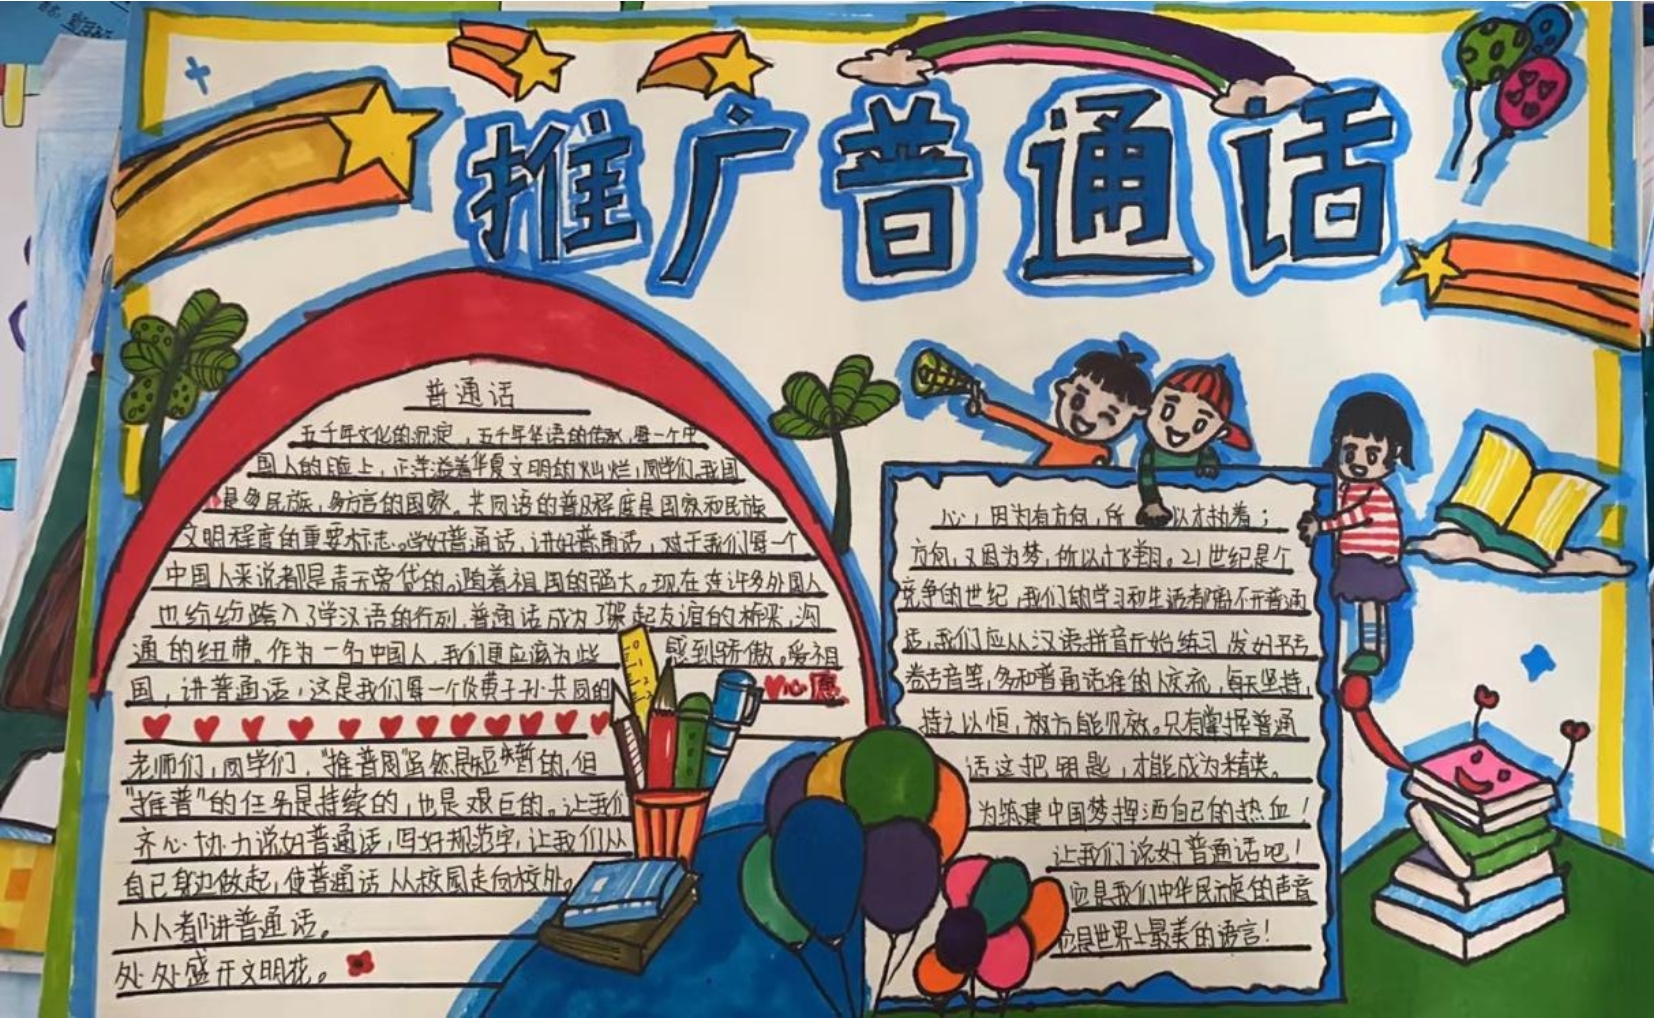 推广普通话
普通话
五千年文化的沉淀,五千年华语的传承,每一个中
国人的脸上,正洋溢着华夏文明的灿烂,同学们,我国
是多民族,多方言的国家。共同语的普及程度是国家和民族
文明程度的重要标志。学好普通话,讲好普通话,对于我们每一个
中国人来说都是责无旁贷的。随着祖国的强大。现在连许多外国人
也纷纷跨入了学汉语的行列,普通话成为了架起友谊的桥梁,沟
通的纽带。作为一名中国人,我们更应该为些 感到骄傲。爱祖
国,讲普通话,这是我们每一个炎黄子孙共同的 心愿
老师们,同学们,"推普周"虽然是短暂的,但
"推普"的任务是持续的,也是艰巨的。让我们
齐心协力说好普通话,写好规范字,让我们从
自己身边做起,使普通话从校园走向校外。
人人都讲普通话。
处处盛开文明花。
心,因为有方向,所 以才执着;
方向,又因为梦,所以才飞翔。21世纪是个
竞争的世纪,我们的学习和生活都离不开普通
话,我们应从汉语拼音开始练习,发好平舌
卷舌音等,多和普通话准的人交流,每天坚持,
持之以恒,效方能见效。只有掌握普通
话这把钥匙,才能成为精英。
为筑建中国梦挥洒自己的热血!
让我们说好普通话吧!
应是我们中华民族的声音
应是世界上最美的语言!